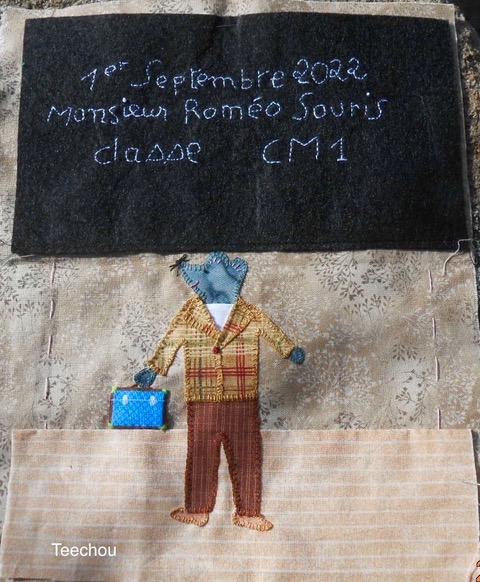 1er Septembre 2022
Monsieur Roméo Souris
classe CM1
Teechou